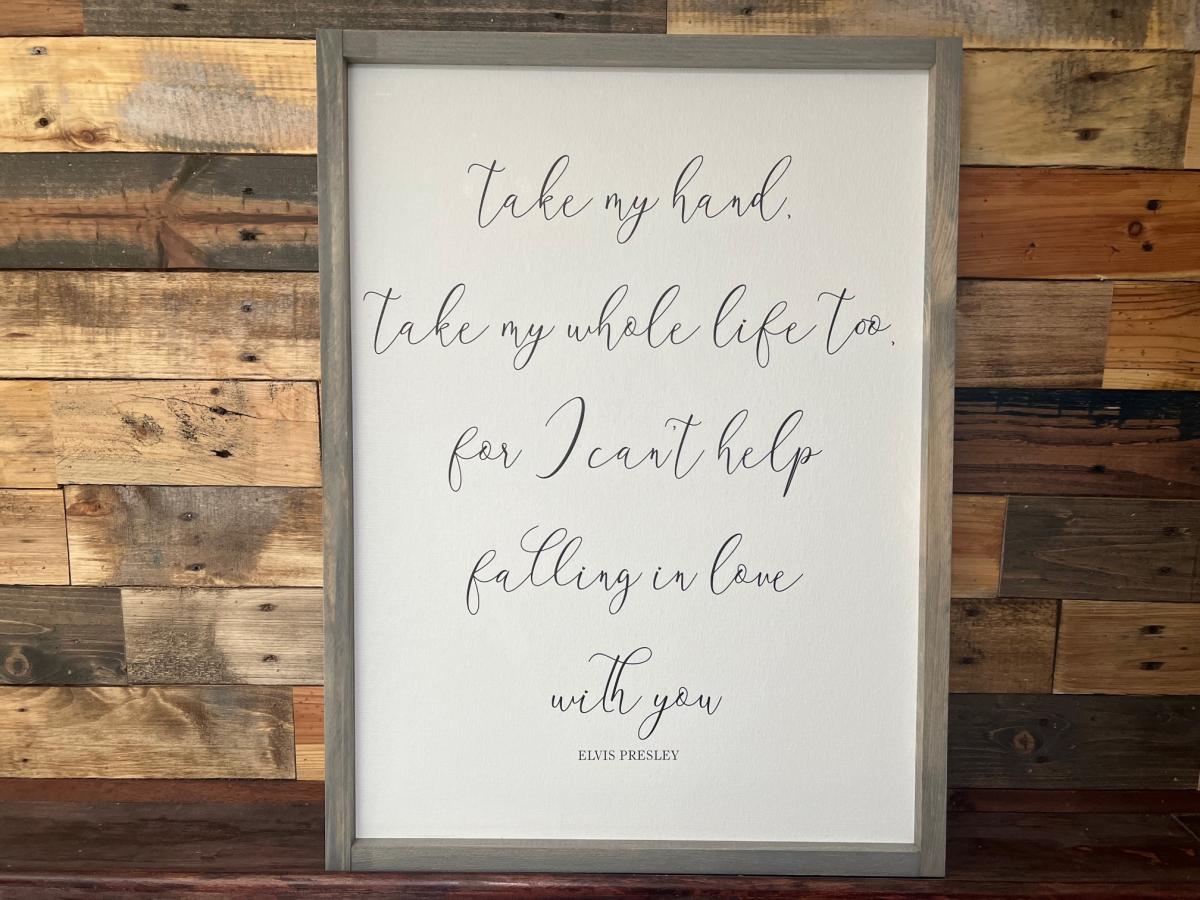 take my hand,
take my whole life too,
for I can't help
falling in love
with you
ELVIS PRESLEY